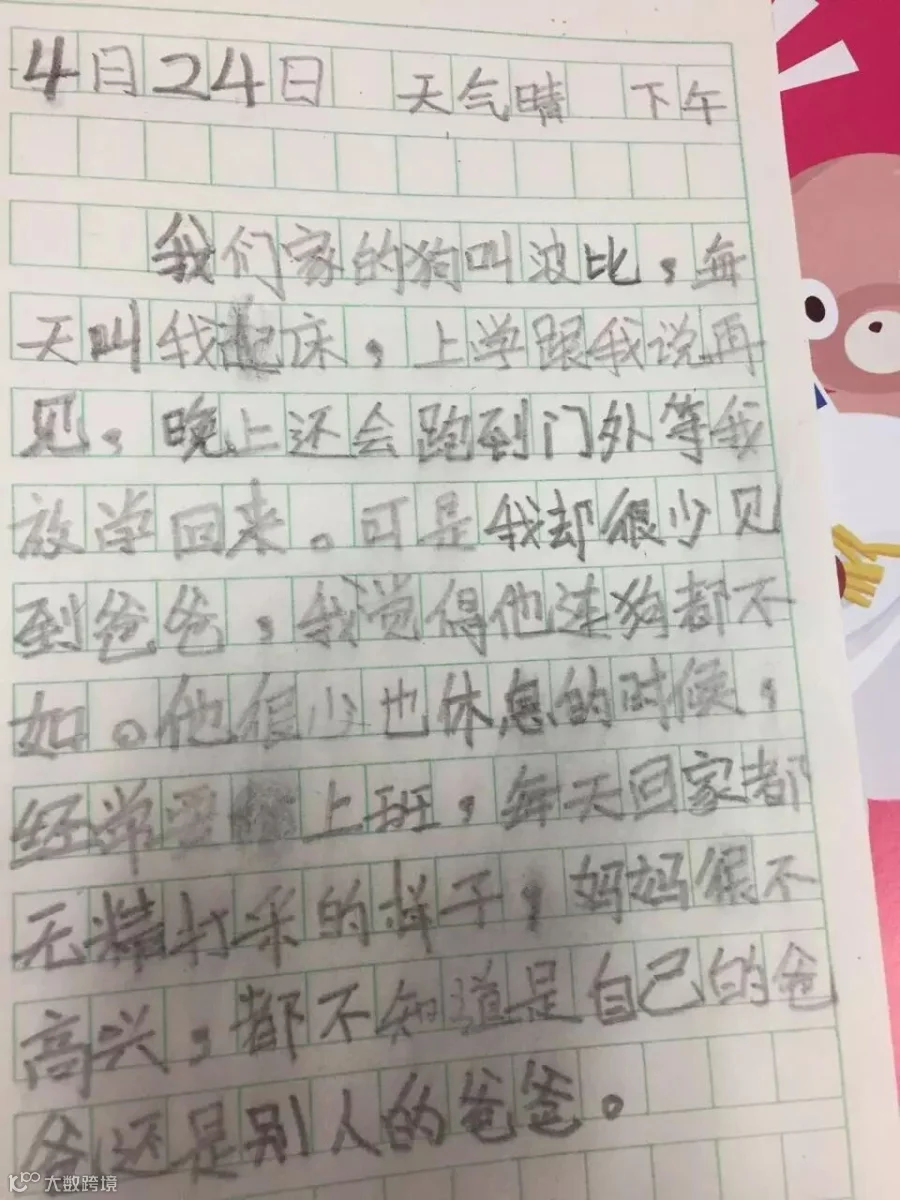 4月24日 天气晴 下午
我们家的狗叫波比，每
天叫我起床，上学跟我说再
见，晚上还会跑到门外等我
放学回来。可是我却很少见
到爸爸，我觉得他连狗都不
如。他很少也休息的时候，
经常要上班，每天回家都
无精打采的样子，妈妈很不
高兴，都不知道是自己的爸
爸还是别人的爸爸。
大数跨境